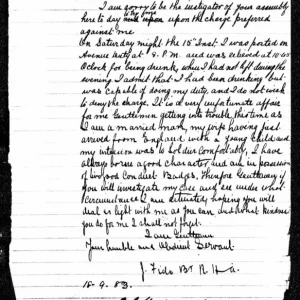 I am sorry to be the instigator of your assembly
to try me
here to day upon the charge preferred
against me.
On Saturday night the 15th Inst. I was posted on
Avenue duty at 2. P.M. and was relieved at 10.45
O'clock for being drunk, which I had not left during the
evening I admit that I had been drinking but
was capable of doing my duty, and I do not wish
to deny the charge. It is a very unfortunate affair
for me Gentlemen getting into trouble this time as
I am a married man, my wife having just
arrived from England with a young child and
my intention was to live comfortably, I have
always borne a good character and am in possession
of two Good Conduct Badges, Therefore Gentlemen if
you will investigate my case and see under what
Circumstances I am situated, hoping you will
deal as light with me as you can, and what kindness
you do for me I shall not forget.
I am Gentlemen
Your humble and obedient Servant
J. Fids Br R.H.A.
18-9-83.